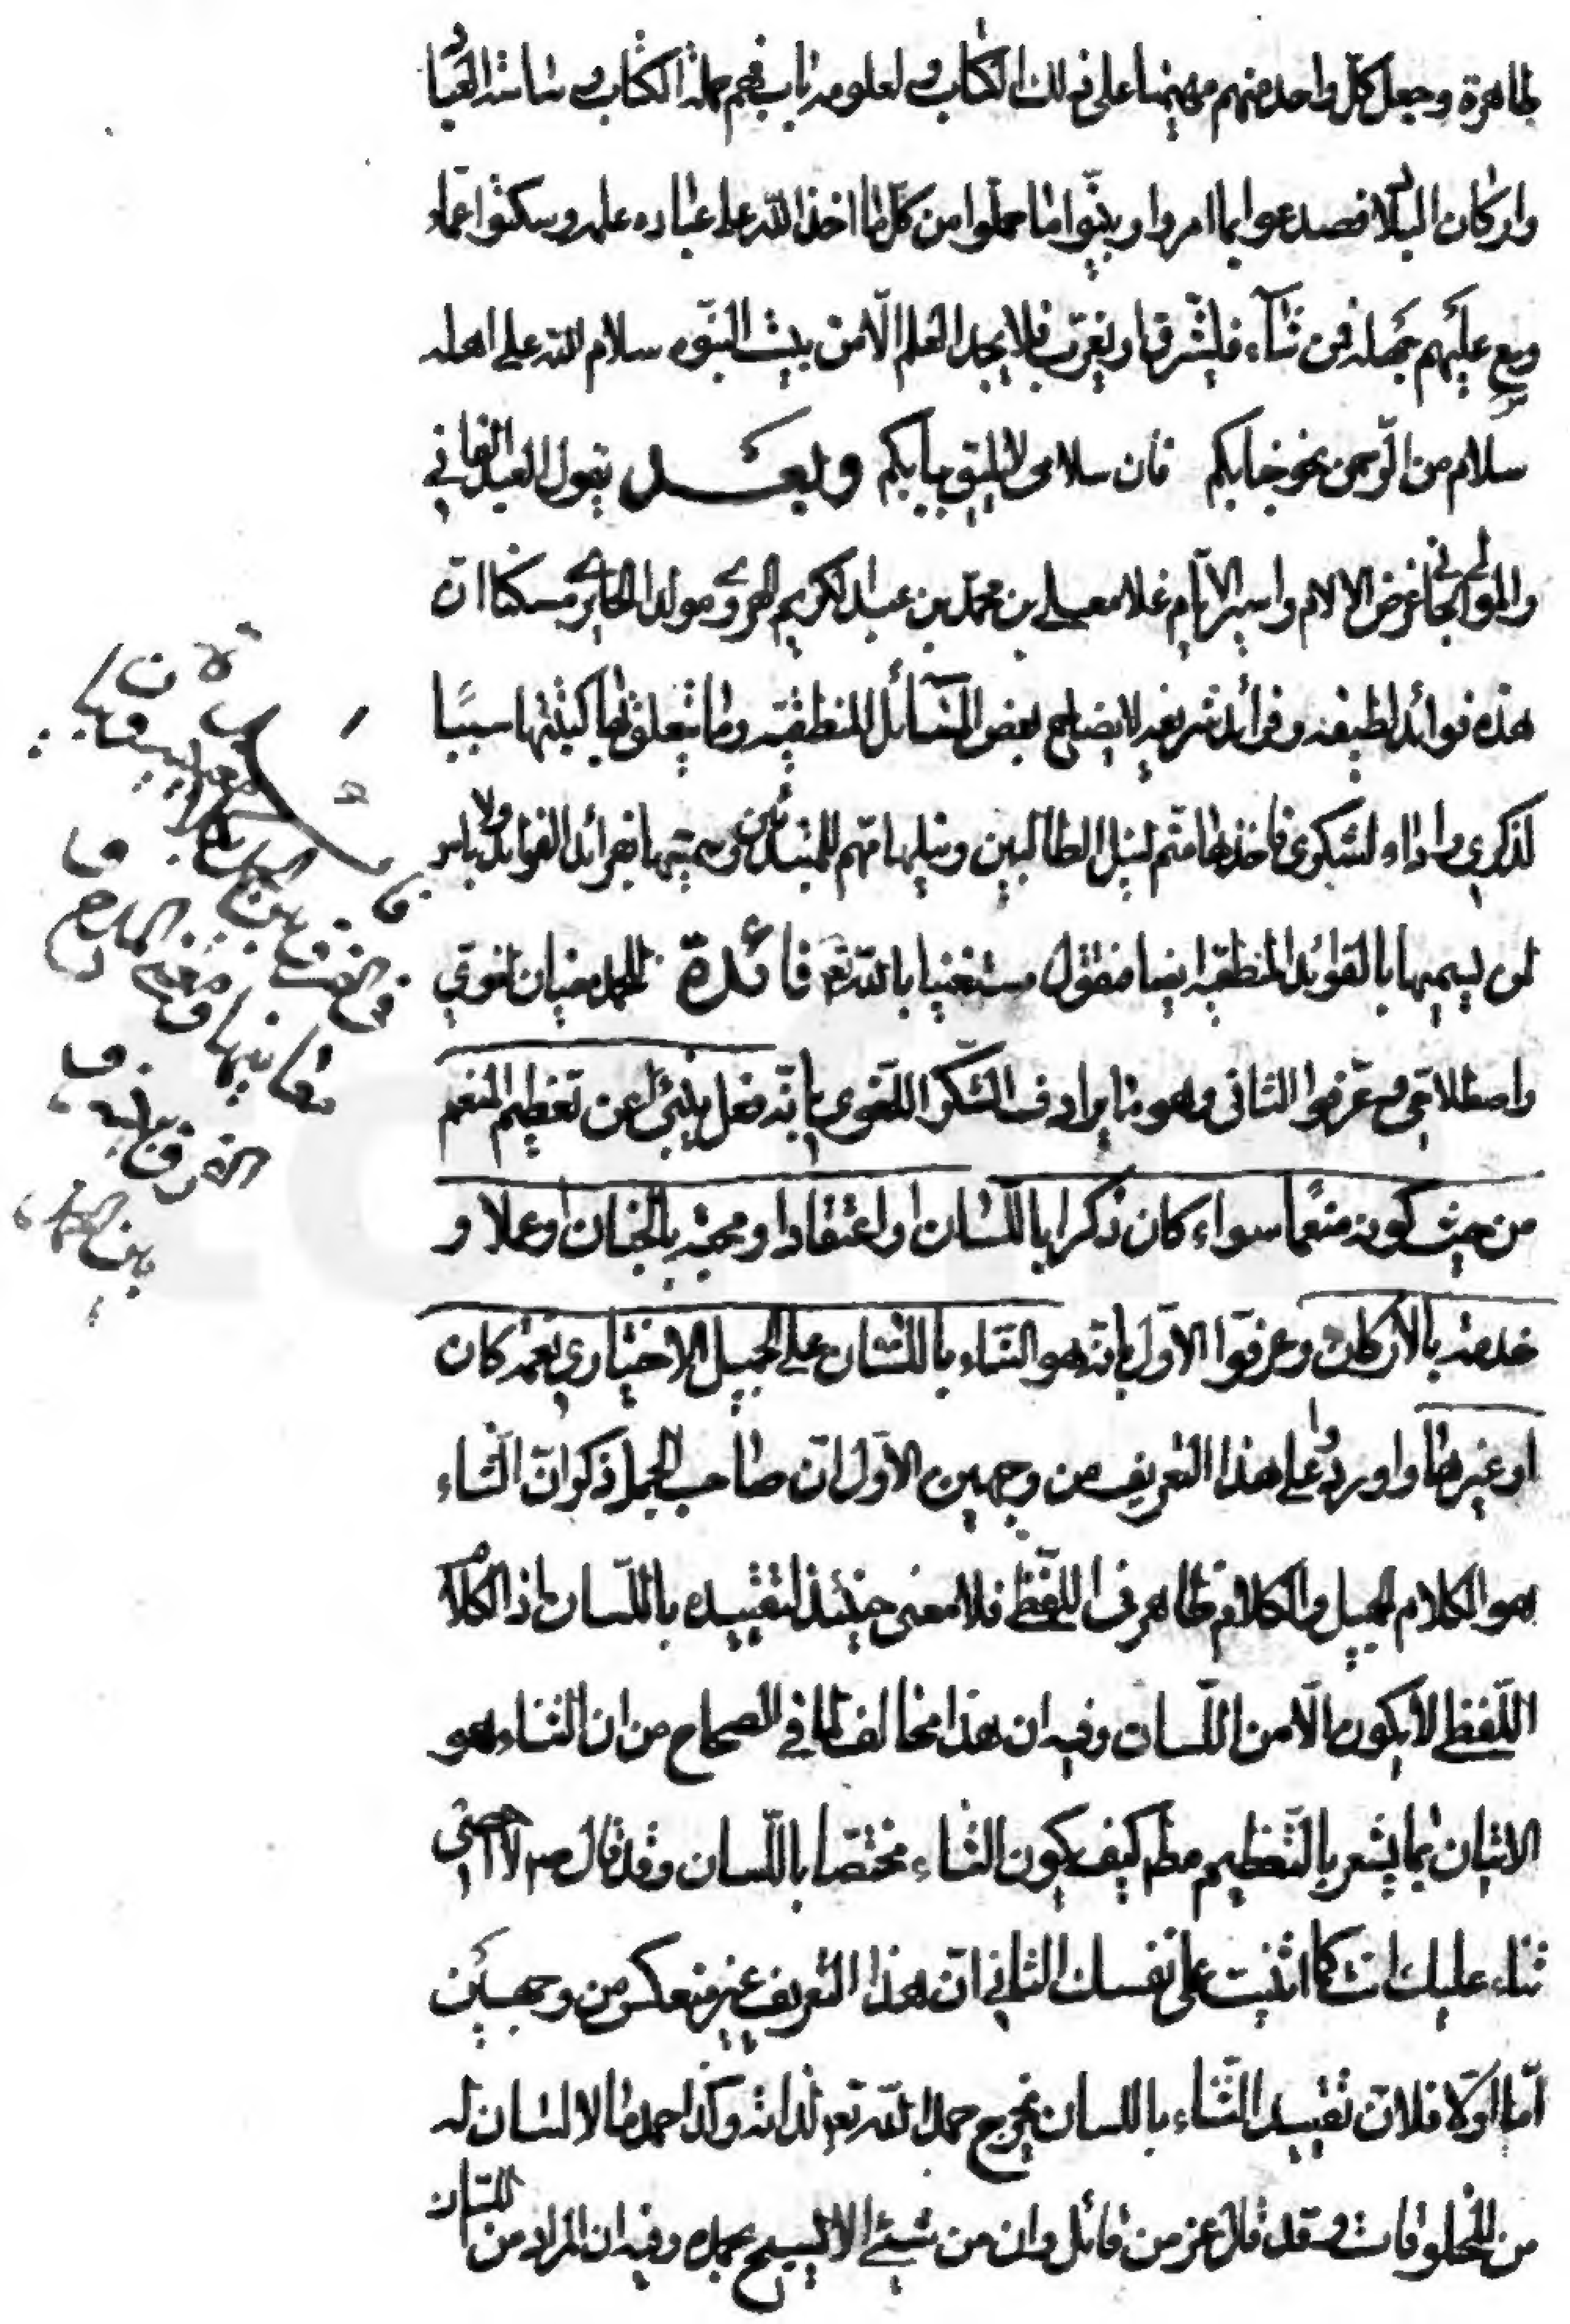 طاهرة وجعل كل واحد منهم مهيمنا على ذلك الكتاب و لعلومه باب فهم حملة الكتاب و ساسة العباد
واركان البلاد فصدعوا بما امروا وبيّنوا ما حملوا من كل ما اخذ الله على عباده علمه وسكتوا عما
وسع عليهم جهله فمن شآء فليشرق او يغرب فلا يجد العلم الّا من بيت النبوّه سلام الله على اهله
سلام من الرّحمن نحو جنابكم فان سلامى لا يليق ببابكم وبعد يقول العبد الفاني
والموالى الجاني غرض الالام واسير الايّام غلامعلى بن محمّد بن عبد الكريم الهروي مولدا الحايري مسكنا انّ
هذه فوائد لطيفة و فرائد شريفه لايضاح بعض المسآئل المنطقيّه وما يتعلق بها كتبتها سببًا
لذكرى واداء لشكرى فاخذها منّى لنيل الطالبين ونيلها منهم للمبتدئين وسميتها بفرائد الفوائد ولا باس
لمن يسميها بالفوائد المنطقيّه ايضا فنقول مستغنيا بالله تع فائدة للحمد معنيان لغوي
واصطلاحي وعرّفوا الثاني وهو ما يرادف الشكر اللغوي بانّه فعل ينبئ عن تعظيم المنعم
من حيث كونه منعما سواء كان ذكرا باللّسان او اعتقادا و محبّة بالجنان او عملا و
خدمة بالاركان وعرفوا الاول بانّه هو الثناء باللسان على الجميل الاختياري نعمة كان
او غيرها واوردوا على هذا التعريف من وجهين الاوّل انّ صاحب المجمل ذكر انّ الثناء
هو الكلام الجميل والكلام ظاهر في اللّفظ فلا معنى حينئذ لتقييده باللّسان اذ الكلام
اللّفظى لا يكون الّا من اللّسان وفيه ان هذا مخالف لما في الصحاح من ان الثناء هو
الاتيان بما يشعر بالتّعظيم مط كيف يكون الثناء مختصّا باللّسان وقد قال ص لا احصى
ثناء عليك انت كما اثنيت على نفسك الثاني انّ هذا التّعريف غير منعكس من وجهين
امّا اوّلا فلانّ تقييد الثّناء باللسان يخرج حمد الله تع لذاته وكذا حمد ما لا لسان له
من المخلوقات وقد قال عز من قائل وان من شيئ الا يسبح بحمده وفيه ان المراد من اللسان
الفرق
بين